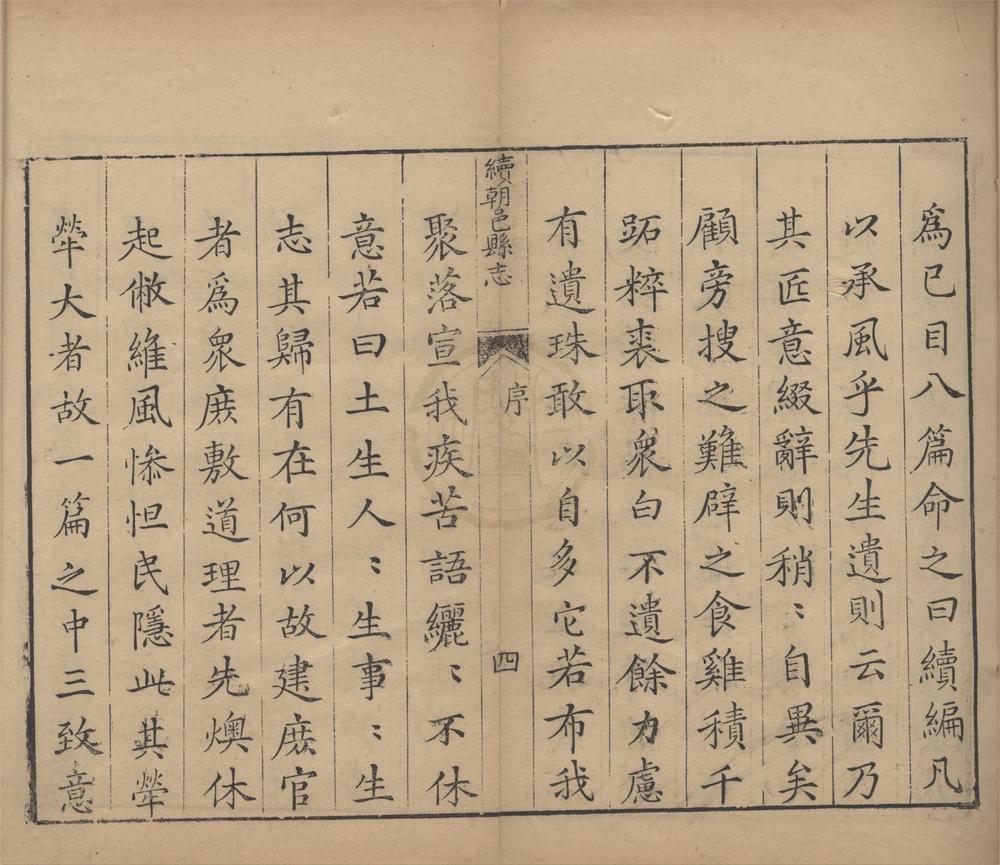 爲已目八篇命之曰續編凡
以承風乎先生遺則云爾乃
其匠意綴辭則稍〻自異矣
顧旁搜之難辟之食雞積千
跖粹裘取衆白不遺餘力處
有遺珠敢以自多它若布我
續朝邑縣志
序
四
聚落宣我疾苦語纚〻不休
意若曰土生人〻生事〻生
志其歸有在何以故建庶官
者爲衆庶敷道理者先燠休
起敝維風慘怛民隱此其犖
犖大者故一篇之中三致意